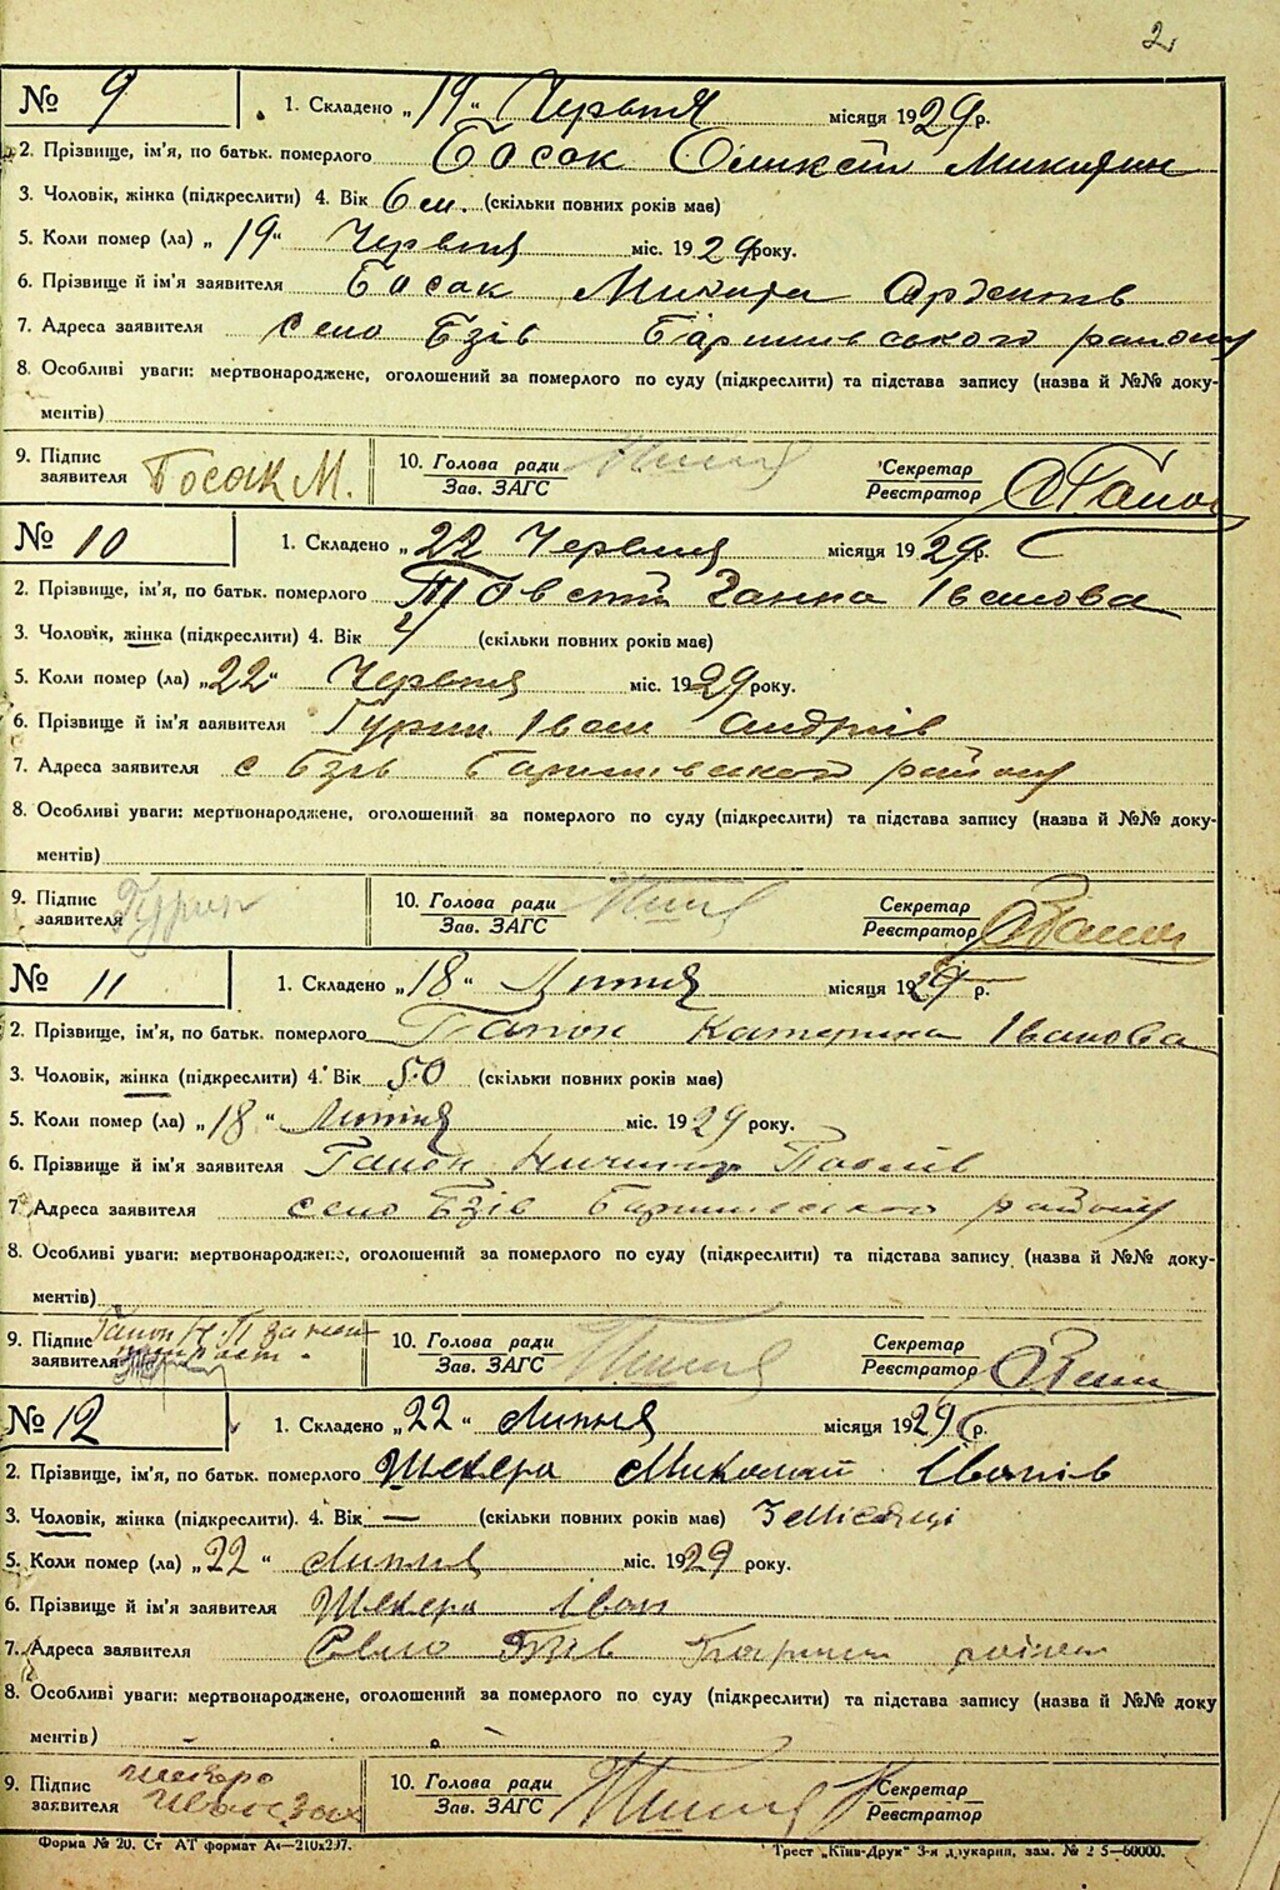 2
№ 9 1. Складено „19" Червня місяця 1929 р.
2. Прізвище, ім'я, по батьк. померлого Босак
3. Чоловік, жінка (підкреслити) 4. Вік 6 м. (скільки повних років має)
5. Коли помер (ла) „19" Червня міс. 1929 року.
6. Прізвище й ім'я заявителя Босак Микита
7. Адреса заявителя село Бзів Баришівського району
8. Особливі уваги: мертвонароджене, оголошений за померлого по суду (підкреслити) та підстава запису (назва й №№ доку-
ментів)
9. Підпис заявителя Босак М. 10. Голова ради Зав. ЗАГС Секретар Реєстратор
№ 10 1. Складено „22 Червня місяця 1929 р.
2. Прізвище, ім'я, по батьк. померлого Ганна Іванова
3. Чоловік, жінка (підкреслити) 4. Вік (скільки повних років має)
5. Коли помер (ла) „22" Червня міс. 1929 року.
6. Прізвище й ім'я заявителя Гурин Іван Андріїв
7. Адреса заявителя с Бзів Баришівського району
8. Особливі уваги: мертвонароджене, оголошений за померлого по суду (підкреслити) та підстава запису (назва й №№ доку-
ментів)
9. Підпис заявителя Гурин 10. Голова ради Зав. ЗАГС Секретар Реєстратор
№ 11 1. Складено „18" Липня місяця 1929 р.
2. Прізвище, ім'я, по батьк. померлого Гапон Катерина Іванова
3. Чоловік, жінка (підкреслити) 4. Вік 50 (скільки повних років має)
5. Коли помер (ла) „18" Липня міс. 1929 року.
6. Прізвище й ім'я заявителя Гапон Ничипір Павлів
7. Адреса заявителя село Бзів Баришівського району
8. Особливі уваги: мертвонароджене, оголошений за померлого по суду (підкреслити) та підстава запису (назва й №№ доку-
ментів)
9. Підпис заявителя Гапон Н. П 10. Голова ради Зав. ЗАГС Секретар Реєстратор
№ 12 1. Складено „22" Липня місяця 1929 р.
2. Прізвище, ім'я, по батьк. померлого Шекера Миколай Іванів
3. Чоловік, жінка (підкреслити). 4. Вік — (скільки повних років має) 3 місяці
5. Коли помер (ла) „22" Липня міс. 1929 року.
6. Прізвище й ім'я заявителя Шекера Іван
7. Адреса заявителя Село Бзів
8. Особливі уваги: мертвонароджене, оголошений за померлого по суду (підкреслити) та підстава запису (назва й №№ доку
ментів)
9. Підпис заявителя Шекера 10. Голова ради Зав. ЗАГС Секретар Реєстратор
Форма № 20. Ст АТ формат А4—210х297. Трест „Київ-Друк" 3-я друкарня, зам. № 2 5—60000.